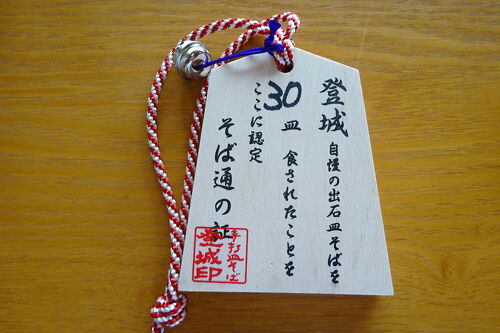 登城 自慢の出石皿そばを
30皿 食されたことを
ここに認定
そば通の証
手打皿そば
登城印